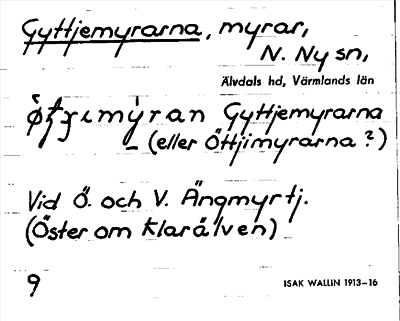 Gyttjemyrarna, myrar,
N. Ny sn,
Älvdals hd, Värmlands län
Gyttjemyrarna
– (eller Öttjimyrarna?)
Vid Ö. och V. Ängmyrtj.
(Öster om Klarälven)
9
ISAK WALLIN 1913–16